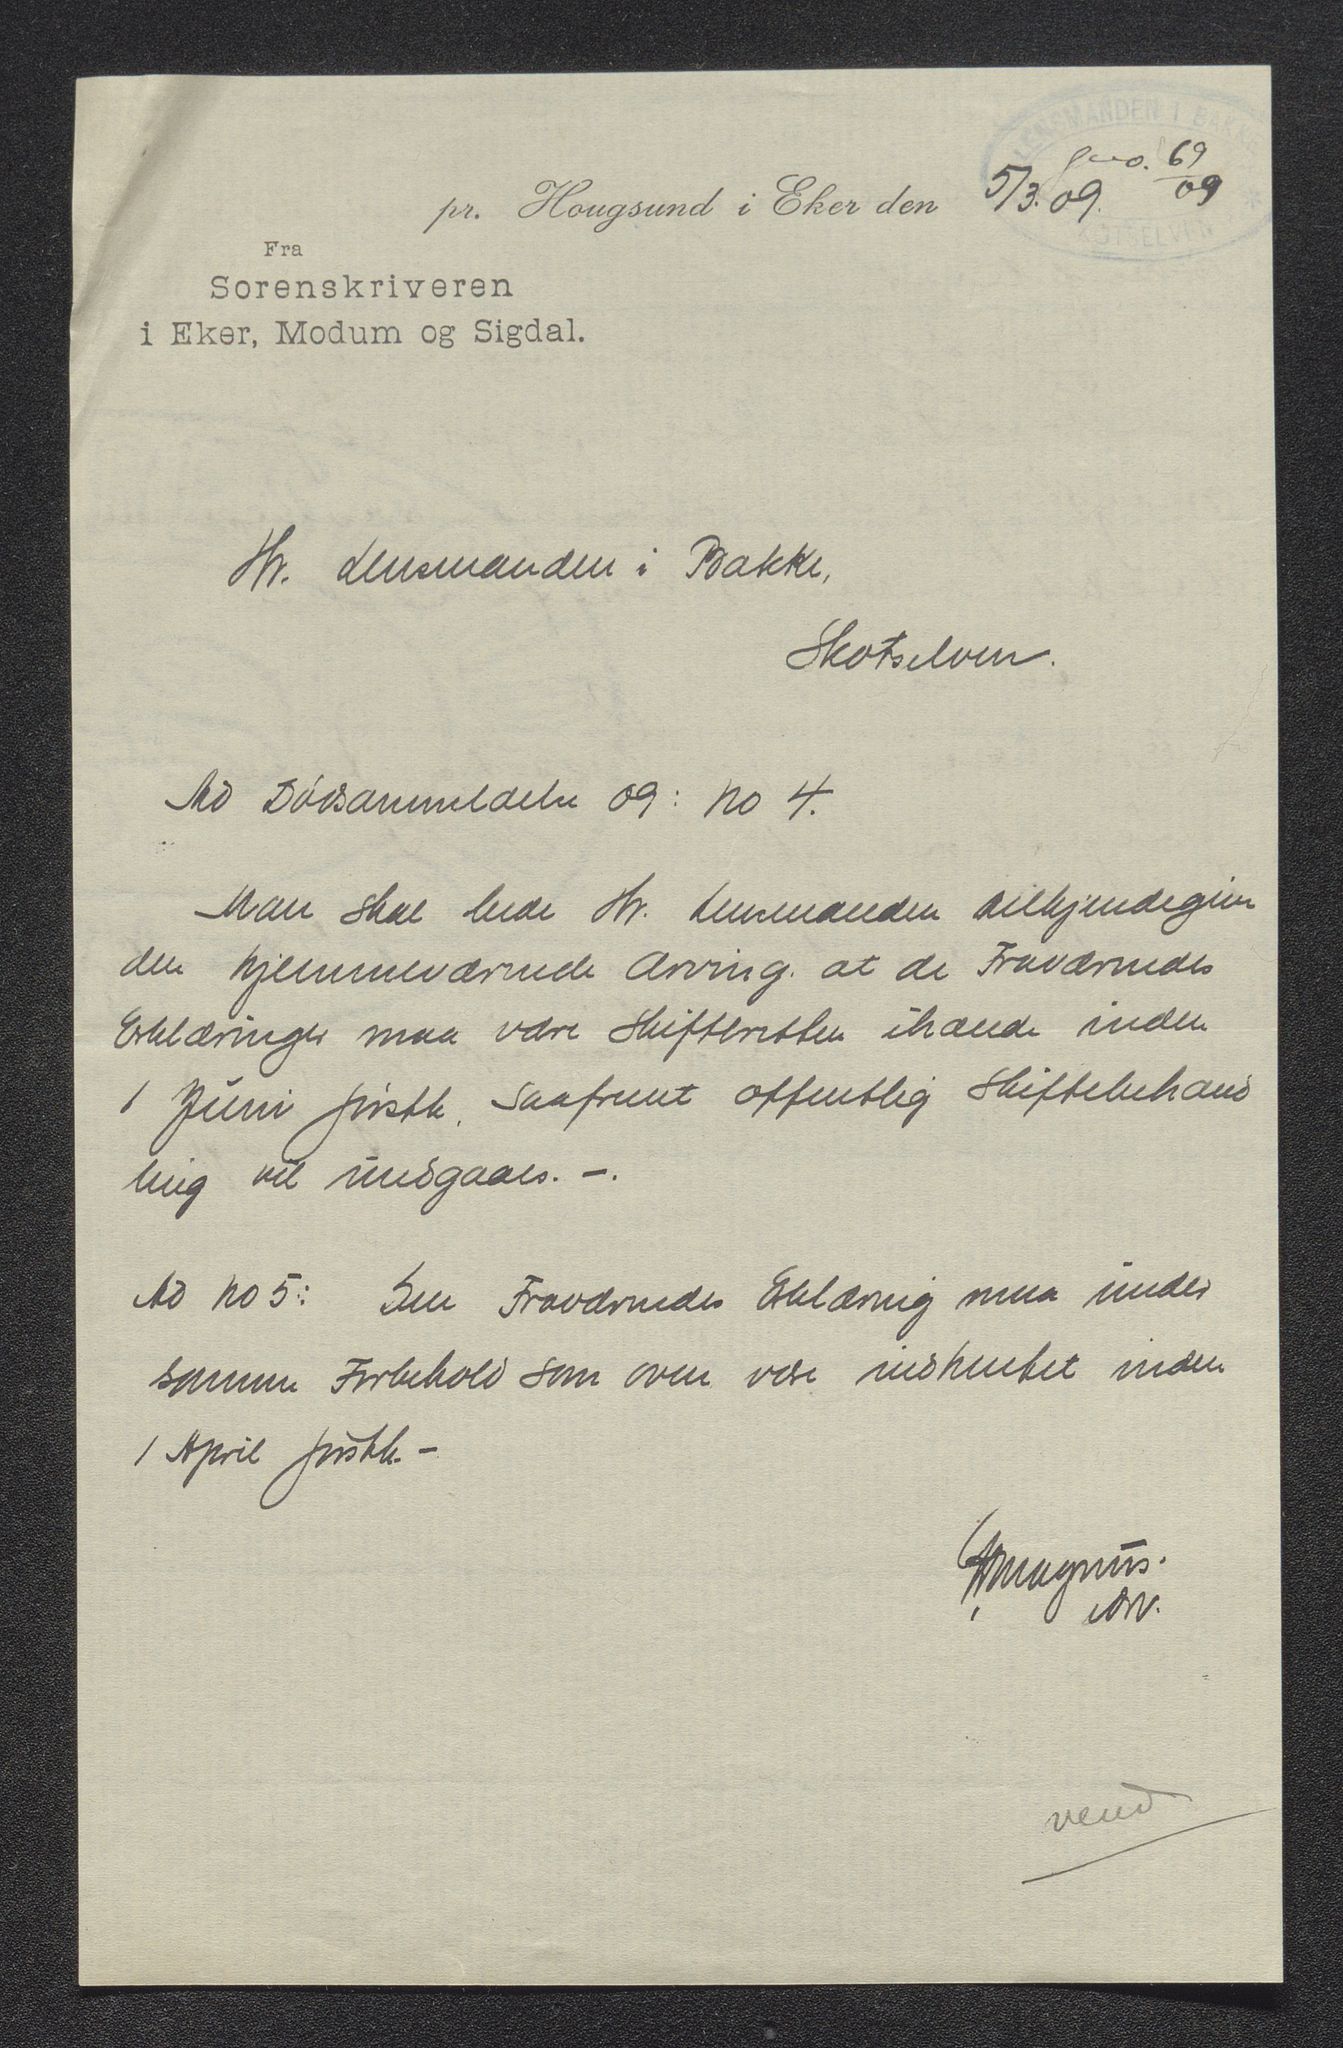 LENSMANDEN I BAKKE
SKOTSELVEN
69
09
pr. Hougsund i Eker den 5/3. 09.
Fra
Sorenskriveren
i Eker, Modum og Sigdal.
Hr. Lensmanden i Bakke,
Skotselven.
Ad Dødsanmeldelse 09: no 4.
Man skal bede Hr. Lensmanden tilkjendegive
den hjemmeværende Arving. at de Fraværendes
Erklæringer maa være Skifteretten ihænde inden
1 Juni førstk. saafremt offentlig Skiftebehand
ling vil undgaaes. -.
Ad no 5: Den Fraværendes Erklæring maa under
samme Forbehold som oven være indhentet inden
1 April førstk. -
Magnus.
vend